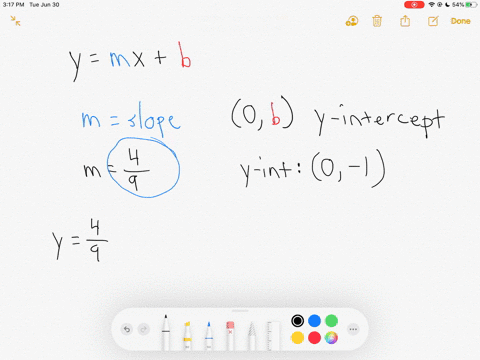 3:17 PM Tue Jun 30
54%
Done
y = mx + b
m = slope
(0, b) y-intercept
m = 4/9
y-int: (0, -1)
y = 4/9